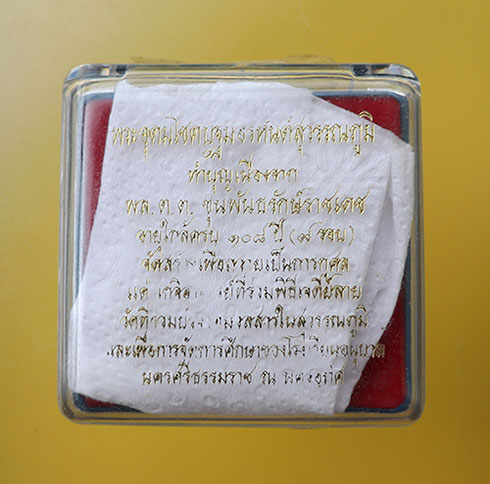 พระอุดมโชคบฐมอรหันต์สุวรรณภูมิ
ทำบุญเนื่องจาก
พล.ต.ต. ขุนพันธรักษ์ราชเดช
อายุใกล้ครบ ๑๐๘ ปี (๙ รอบ)
จัดสร้างเพื่อถวายเป็นการกุศล
แด่ ย์ที่ร่วมพิธีเจดีย์ราย
วัดที่รวม สารในสุวรรณภูมิ
และเพื่อการจัดการศึกษาของโรงเรียนอนุบาล
นครศรีธรรมราช ณ นครอุทิศ